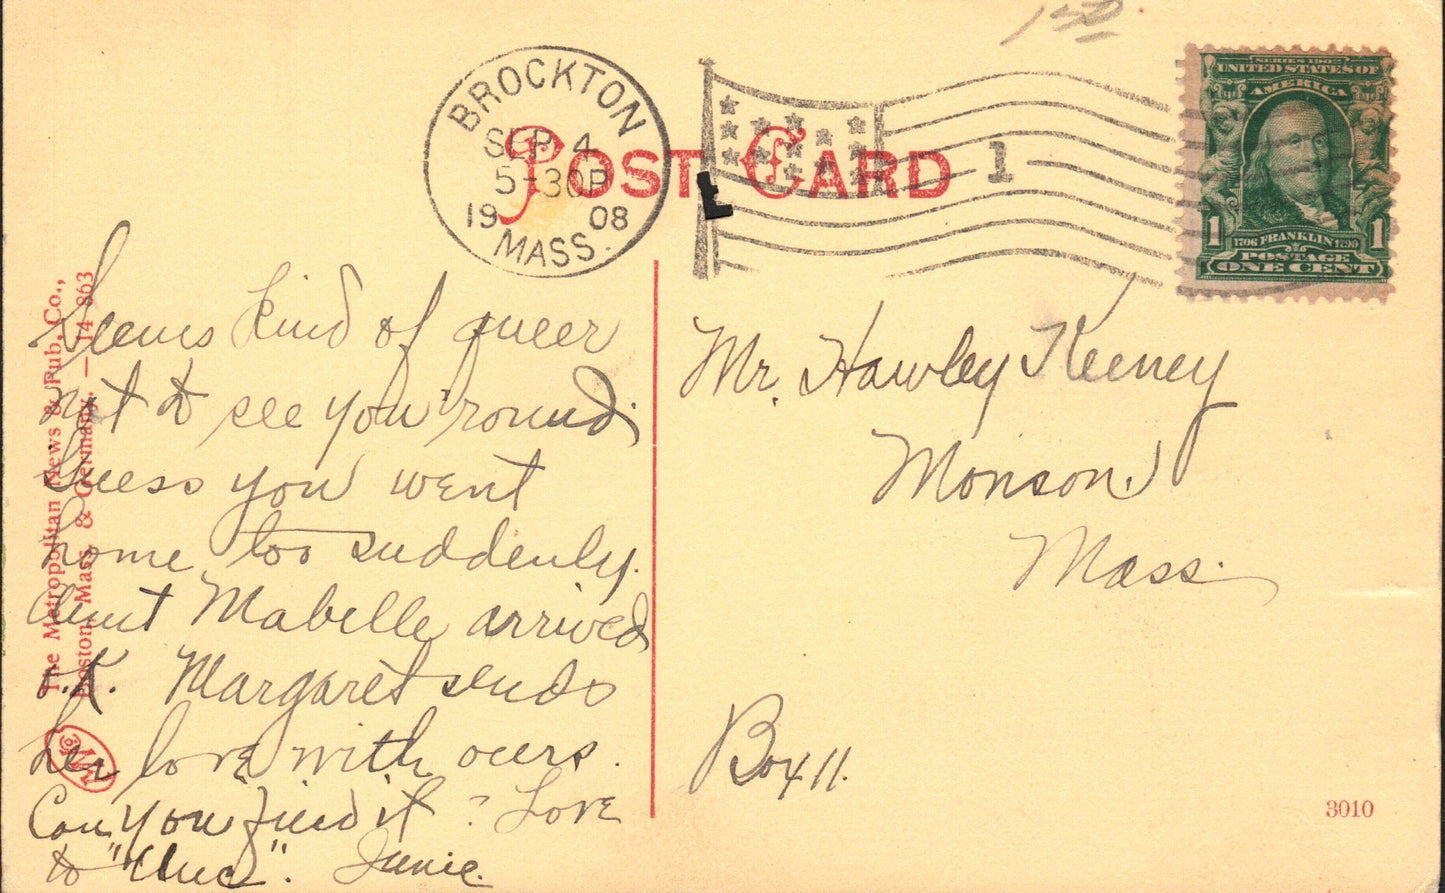 BROCKTON
SEP 4
5-30P
19 08
MASS.
POST CARD
1
SERIES 1902
UNITED STATES OF
AMERICA
1 1
1706 FRANKLIN 1790
POSTAGE
ONE CENT
Seems kind of queer
not to see you 'round.
Guess you went
home too suddenly.
Aunt Mabelle arrived
O.K. Margaret sends
her love with ours.
Can you find it? Love
to "Unc". Janie.
Mr. Hawley Keeney
Monson.
Mass.
Box 11.
The Metropolitan News & Pub. Co.,
Boston, Mass. & Germany. — 14 863
3010